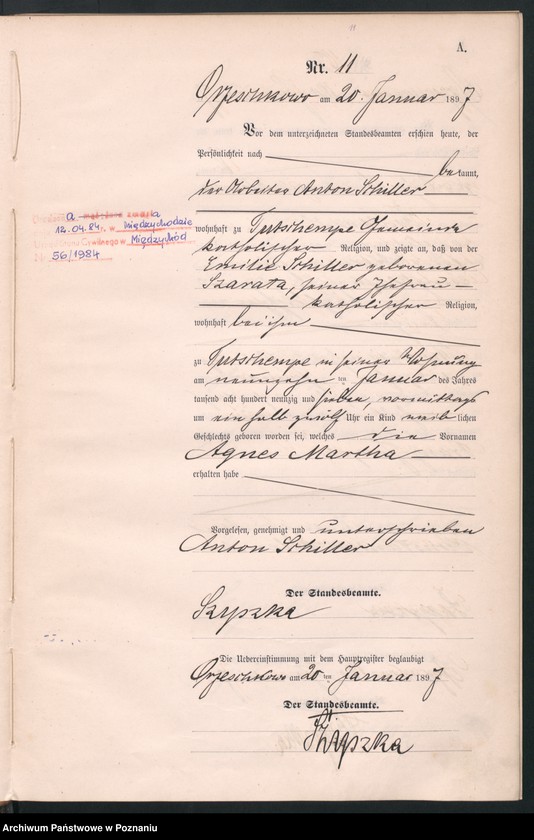 A.
Nr. 11
Orzeschkowo am 20. Januar 1897
Vor dem unterzeichneten Standesbeamten erschien heute, der
Persönlichkeit nach
bekannt,
der Arbeiter Anton Schiller
wohnhaft zu Tutschempe Gemeinde
katholischer Religion, und zeigte an, daß von der
Emilie Schiller geborenen
Szarata, seiner Ehefrau
katholischer Religion,
wohnhaft bei ihm
zu Tutschempe in seiner Wohnung
am neunzehn ten Januar des Jahres
tausend acht hundert neunzig und sieben, vormittags
um ein halb zwölf Uhr ein Kind weib lichen
Geschlechts geboren worden sei, welches die Vornamen
Agnes Martha
erhalten habe
Vorgelesen, genehmigt und unterschrieben
Anton Schiller
Der Standesbeamte.
Szypzka
Die Uebereinstimmung mit dem Hauptregister beglaubigt
Orzeschkowo am 20 ten Januar 1897
Der Standesbeamte.
Szypzka
12.04.84r. w Międzychodzie
Cywilnego w Międzychód
56/1984
Archiwum Państwowe w Poznaniu